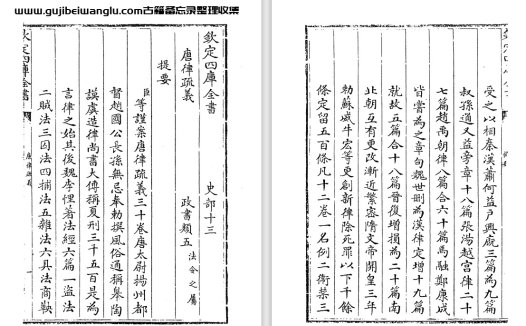 www.gujibeiwanglu.com古籍备忘录整理收集
欽定四庫全書 史部十三
唐律疏義 政書類五 法令之屬
提要
臣等謹案唐律疏義三十卷唐太尉揚州都
督趙國公長孫無忌奉勅撰風俗通稱皋陶
謨虞造律尚書大傳稱夏刑三千五百是為
言律之始其後魏李悝著法經六篇一盜法
二賊法三囚法四捕法五雜法六具法商鞅
欽定四庫全書
唐律疏義
受之以相秦漢蕭何益戶興廐三篇為九篇
叔孫通又益旁章十八篇張湯越宮律二十
七篇趙禹朝律八篇合六十篇馬融鄭康成
皆嘗為之章句魏世刪為漢律定增十九篇
就故五篇合十八篇晉復增損為二十篇南
北朝互有更改漸近繁密隋文帝開皇三年
勅蘇威牛宏等更創新律除死罪以下千餘
條定留五百條凡十二卷一名例二衛禁三